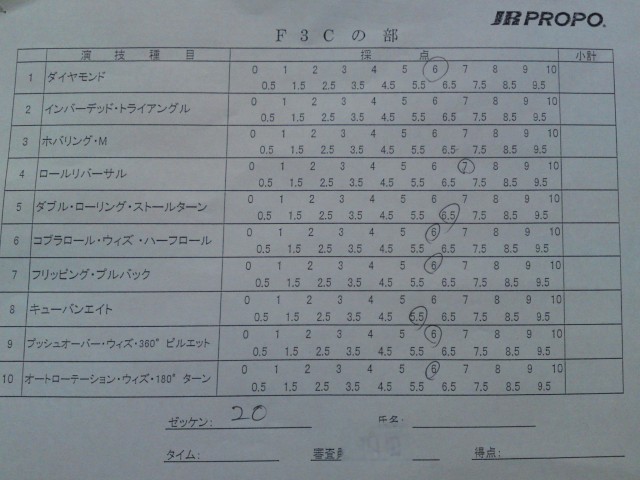 JR PROPO.
F3Cの部
演技種目 採点 小計
1 ダイヤモンド 0 1 2 3 4 5 6 7 8 9 10
0.5 1.5 2.5 3.5 4.5 5.5 6.5 7.5 8.5 9.5
2 インバーデッド・トライアングル 0 1 2 3 4 5 6 7 8 9 10
0.5 1.5 2.5 3.5 4.5 5.5 6.5 7.5 8.5 9.5
3 ホバリング・M 0 1 2 3 4 5 6 7 8 9 10
0.5 1.5 2.5 3.5 4.5 5.5 6.5 7.5 8.5 9.5
4 ロールリバーサル 0 1 2 3 4 5 6 7 8 9 10
0.5 1.5 2.5 3.5 4.5 5.5 6.5 7.5 8.5 9.5
5 ダブル・ローリング・ストールターン 0 1 2 3 4 5 6 7 8 9 10
0.5 1.5 2.5 3.5 4.5 5.5 6.5 7.5 8.5 9.5
6 コブラロール・ウィズ・ハーフロール 0 1 2 3 4 5 6 7 8 9 10
0.5 1.5 2.5 3.5 4.5 5.5 6.5 7.5 8.5 9.5
7 フリッピング・プルバック 0 1 2 3 4 5 6 7 8 9 10
0.5 1.5 2.5 3.5 4.5 5.5 6.5 7.5 8.5 9.5
8 キューバンエイト 0 1 2 3 4 5 6 7 8 9 10
0.5 1.5 2.5 3.5 4.5 5.5 6.5 7.5 8.5 9.5
9 プッシュオーバー・ウィズ・360° ピルエット 0 1 2 3 4 5 6 7 8 9 10
0.5 1.5 2.5 3.5 4.5 5.5 6.5 7.5 8.5 9.5
10 オートローテーション・ウィズ・180° ターン 0 1 2 3 4 5 6 7 8 9 10
0.5 1.5 2.5 3.5 4.5 5.5 6.5 7.5 8.5 9.5
ゼッケン: 20 氏名:
タイム: 審査員 得点: